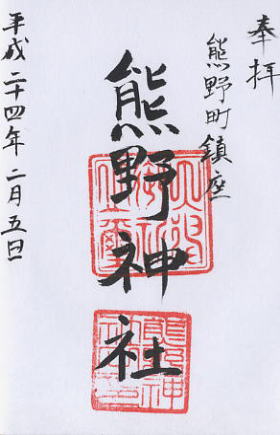 奉拝
熊野町鎮座
熊野神社
平成二十四年二月五日